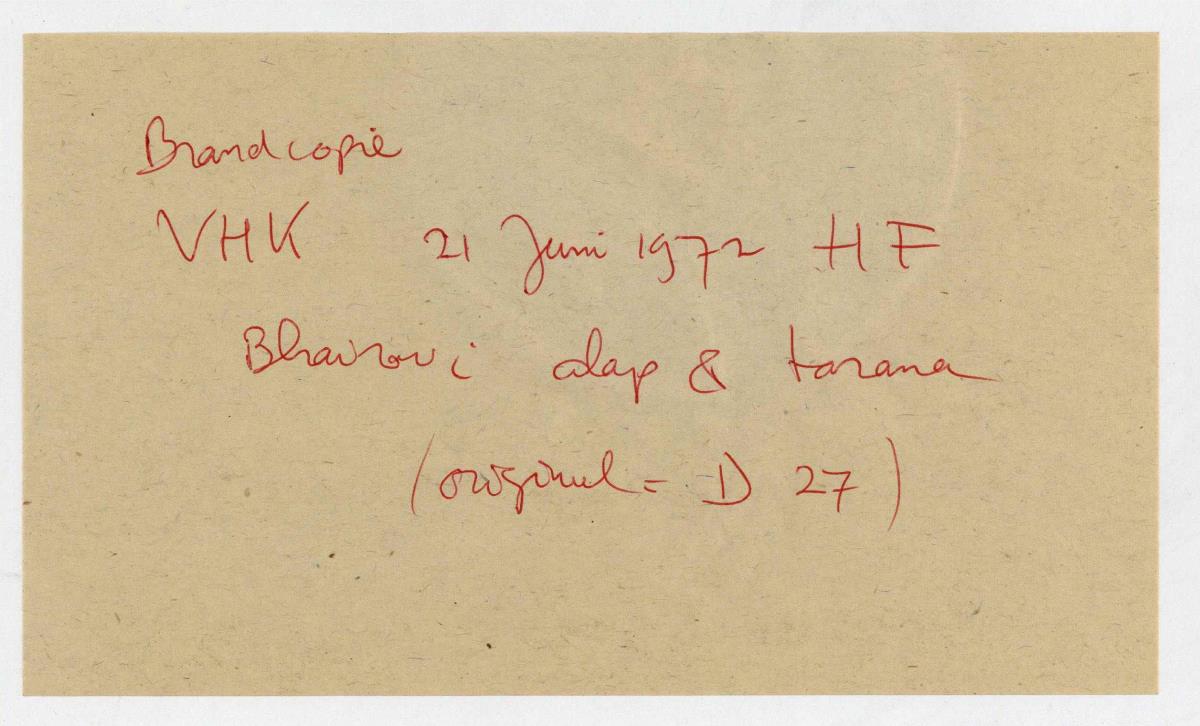 Brandcopie
VHK 21 Juni 1972 HF
Bhairavi alap & tarana
(original = D 27)